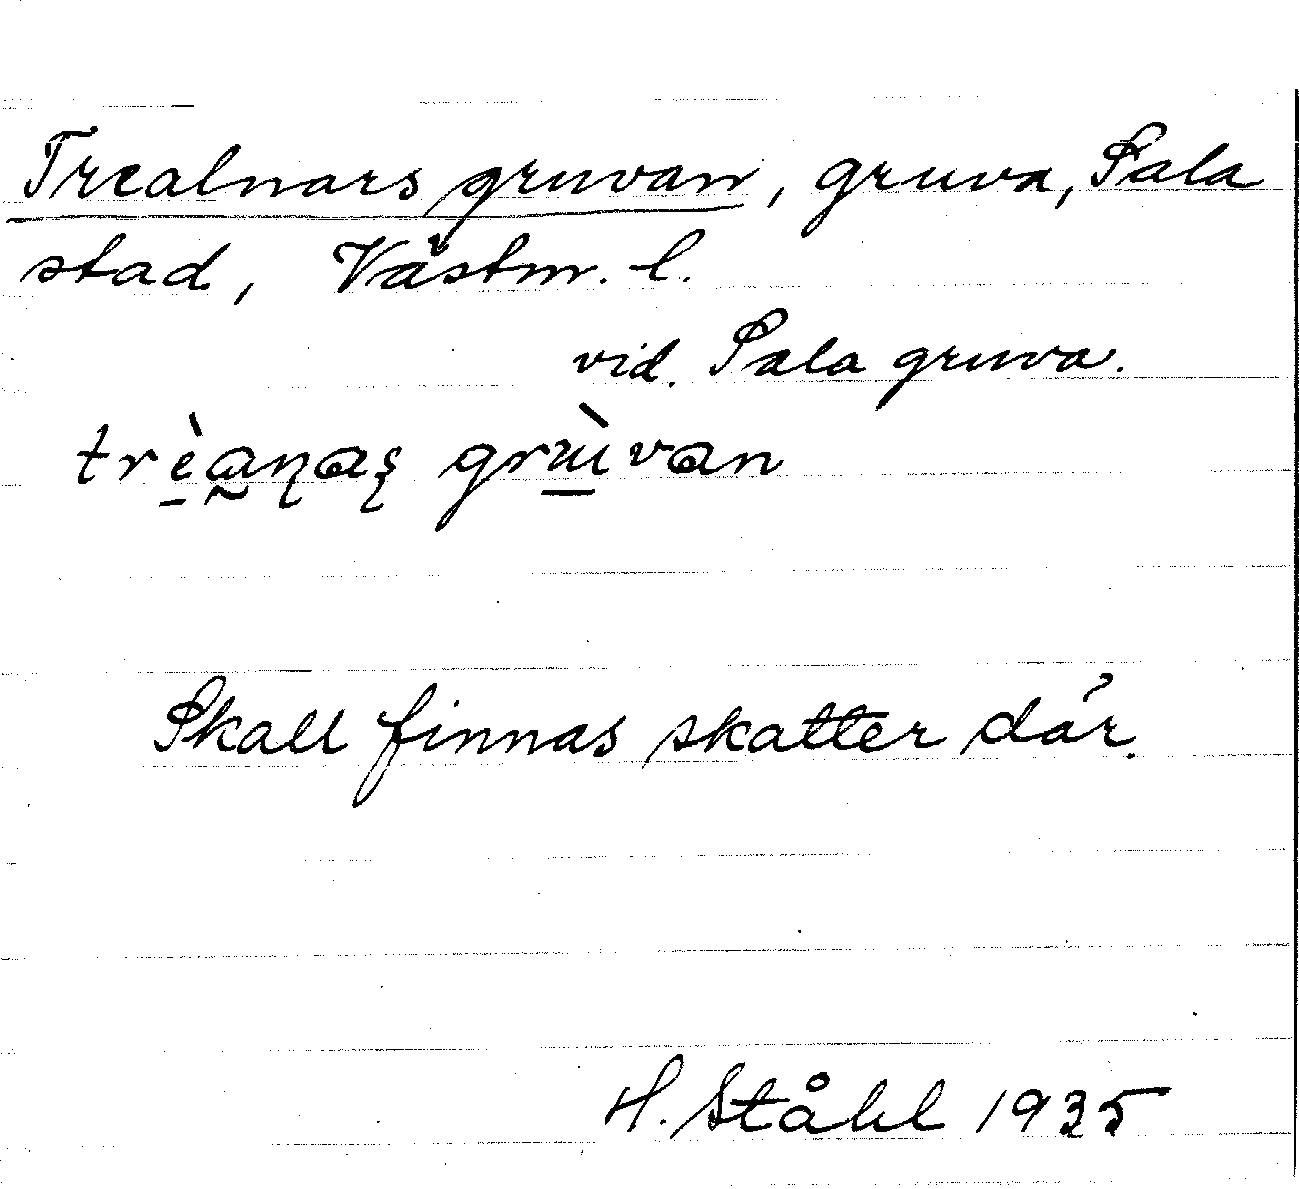 Trealnars gruvan, gruva, Sala
stad, Västm. l.
vid. Sala gruva.
trè̱a̰ɳaʂ grɯ̱̀van
Skall finnas skatter där.
H. Ståhl 1935